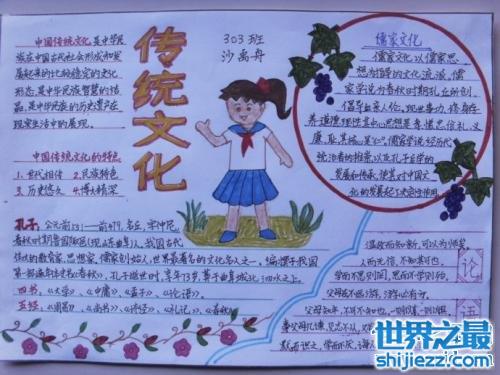 传统文化
303班
沙禹舟
中国传统文化,是中华民
族在中国古代社会形成和发
展起来的比较稳定的文化
形态,是中华民族智慧的结
晶,是中华民族的历史遗产在
现实生活中的展现。
中国传统文化的特色
1.世代相传 2.民族特色
3.历史悠久 4.博大精深
儒家文化
儒家文化以儒家思
想为指导的文化流派。儒
家学说为春秋时期孔丘所创,
倡导血亲人伦、现世事功、修身存
养、道德理性其中心思想是孝、悌、忠、信、礼、义、
廉、耻,其核心是"仁"。儒家学说经历代
统治者的推崇,以及孔子后学的
发展和传承,使其对中国文
化的发展起了决定性作用。
孔子:公元前551——前479,名丘,字仲尼,
春秋时期鲁国陬邑(现山东曲阜)人,我国古代
伟大的教育家、思想家,儒家创始人,世界最著名的文化名人之一。编撰了我国
第一部编年体史书《春秋》。孔子逝世时,享年73岁,葬于曲阜城北泗水之上。
四书:《大学》《中庸》《孟子》《论语》
五经:《周易》《尚书》《诗经》《礼记》《春秋》
论语
温故而知新,可以为师矣。
人而无信,不知其可也。
学而不思则罔,思而不学则殆。
父母在,不远游,游必有方。
父母之年,不可不知也。一则以喜,一则以惧。
世界之最
shijiezzi.com